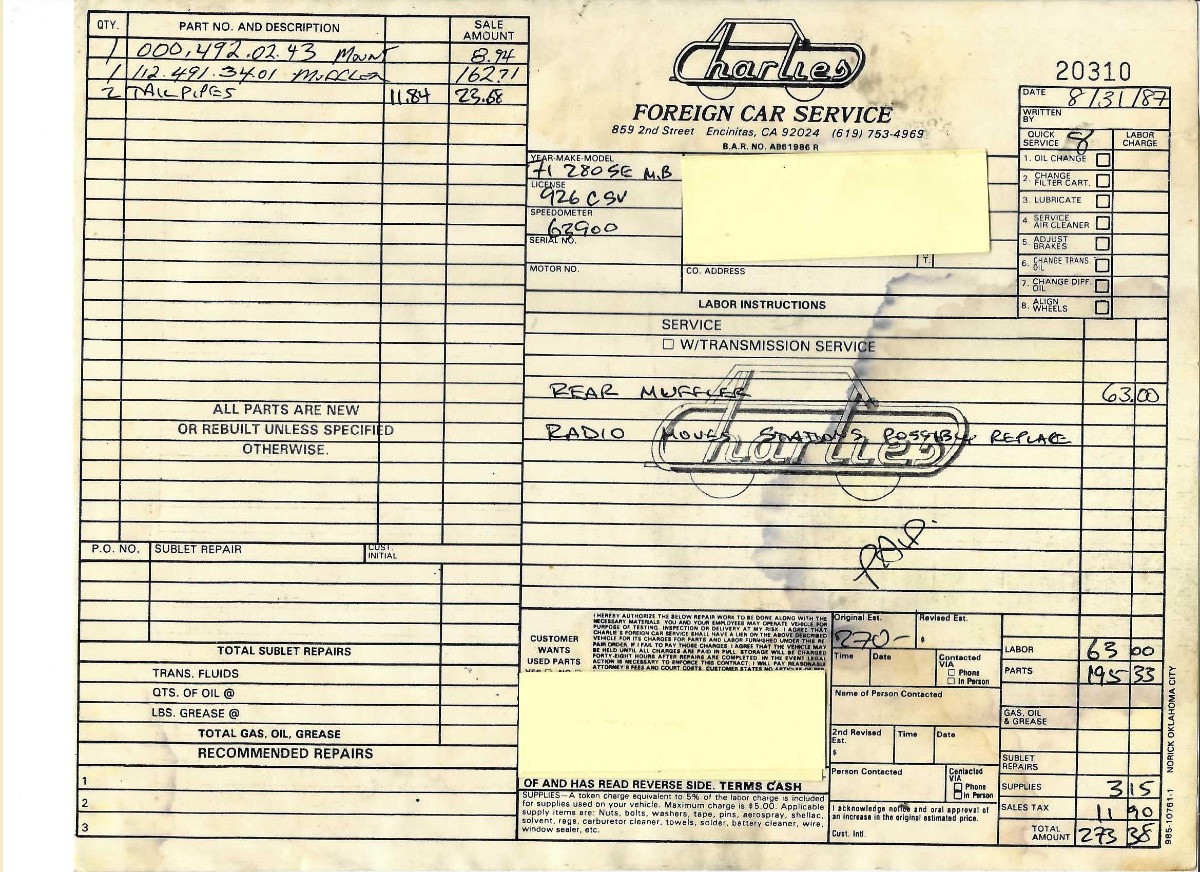 QTY. PART NO. AND DESCRIPTION SALE AMOUNT
1 000.492.02.43 MOUNT 8.94
1 112.491.3401 MUFFLER 162.71
2 TAIL PIPES 11.84 23.68
ALL PARTS ARE NEW
OR REBUILT UNLESS SPECIFIED
OTHERWISE.
P.O. NO. SUBLET REPAIR CUST. INITIAL
TOTAL SUBLET REPAIRS
TRANS. FLUIDS
QTS. OF OIL @
LBS. GREASE @
TOTAL GAS, OIL, GREASE
RECOMMENDED REPAIRS
1
2
3
Charlies
FOREIGN CAR SERVICE
859 2nd Street Encinitas, CA 92024 (619) 753-4969
B.A.R. NO. AB61986 R
YEAR-MAKE-MODEL
71 280SE M.B
LICENSE
926 CSV
SPEEDOMETER
62900
SERIAL NO.
MOTOR NO. CO. ADDRESS
T.
20310
DATE 8/31/87
WRITTEN BY
QUICK SERVICE 8 LABOR CHARGE
1. OIL CHANGE
2. CHANGE FILTER CART.
3. LUBRICATE
4. SERVICE AIR CLEANER
5. ADJUST BRAKES
6. CHANGE TRANS. OIL
7. CHANGE DIFF. OIL
8. ALIGN WHEELS
LABOR INSTRUCTIONS
SERVICE
W/TRANSMISSION SERVICE
REAR MUFFLER 63.00
RADIO MOVES STATIONS POSSIBLY REPLACE
Charlies
PAID.
CUSTOMER
WANTS
USED PARTS
I HEREBY AUTHORIZE THE BELOW REPAIR WORK TO BE DONE ALONG WITH THE
NECESSARY MATERIALS. YOU AND YOUR EMPLOYEES MAY OPERATE VEHICLE FOR
PURPOSE OF TESTING, INSPECTION OR DELIVERY AT MY RISK. I AGREE THAT
CHARLIE'S FOREIGN CAR SERVICE SHALL HAVE A LIEN ON THE ABOVE DESCRIBED
VEHICLE FOR ITS CHARGES FOR PARTS AND LABOR FURNISHED UNDER THIS RE-
PAIR ORDER. IF I FAIL TO PAY THOSE CHARGES, I AGREE THAT THE VEHICLE MAY
BE HELD UNTIL ALL CHARGES ARE PAID IN FULL. STORAGE WILL BE CHARGED
FORTY-EIGHT HOURS AFTER REPAIRS ARE COMPLETED. IN THE EVENT LEGAL
ACTION IS NECESSARY TO ENFORCE THIS CONTRACT, I WILL PAY REASONABLE
ATTORNEY'S FEES AND COURT COSTS. CUSTOMER STATES NO ARTICLES OF
OF AND HAS READ REVERSE SIDE. TERMS CASH
SUPPLIES—A token charge equivalent to 5% of the labor charge is included
for supplies used on your vehicle. Maximum charge is $5.00. Applicable
supply items are: Nuts, bolts, washers, tape, pins, aerospray, shellac,
solvent, rags, carburetor cleaner, towels, solder, battery cleaner, wire,
window sealer, etc.
Original Est. 270- Revised Est. $
Time Date Contacted VIA Phone In Person
Name of Person Contacted
2nd Revised Est. $ Time Date
Person Contacted Contacted VIA Phone In Person
I acknowledge notice and oral approval of
an increase in the original estimated price.
Cust. Intl.
LABOR 63 00
PARTS 195 33
GAS, OIL & GREASE
SUBLET REPAIRS
SUPPLIES 3 15
SALES TAX 11 90
TOTAL AMOUNT 273 38
985-10761-1 NORICK OKLAHOMA CITY